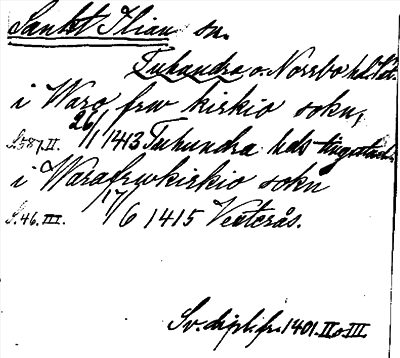 Sankt Ilian sn.
Tuhundra o. Norrbo hd. Vstl.
i Wara frw kirkio sokn,
S. 587. II. 26/1 1413 Tuhundra hds tingstad.
i Warafrwkirkio sokn
S. 46. III. 17/6 1415 Vesterås.
Sv. dipl. fr. 1401. II o III.